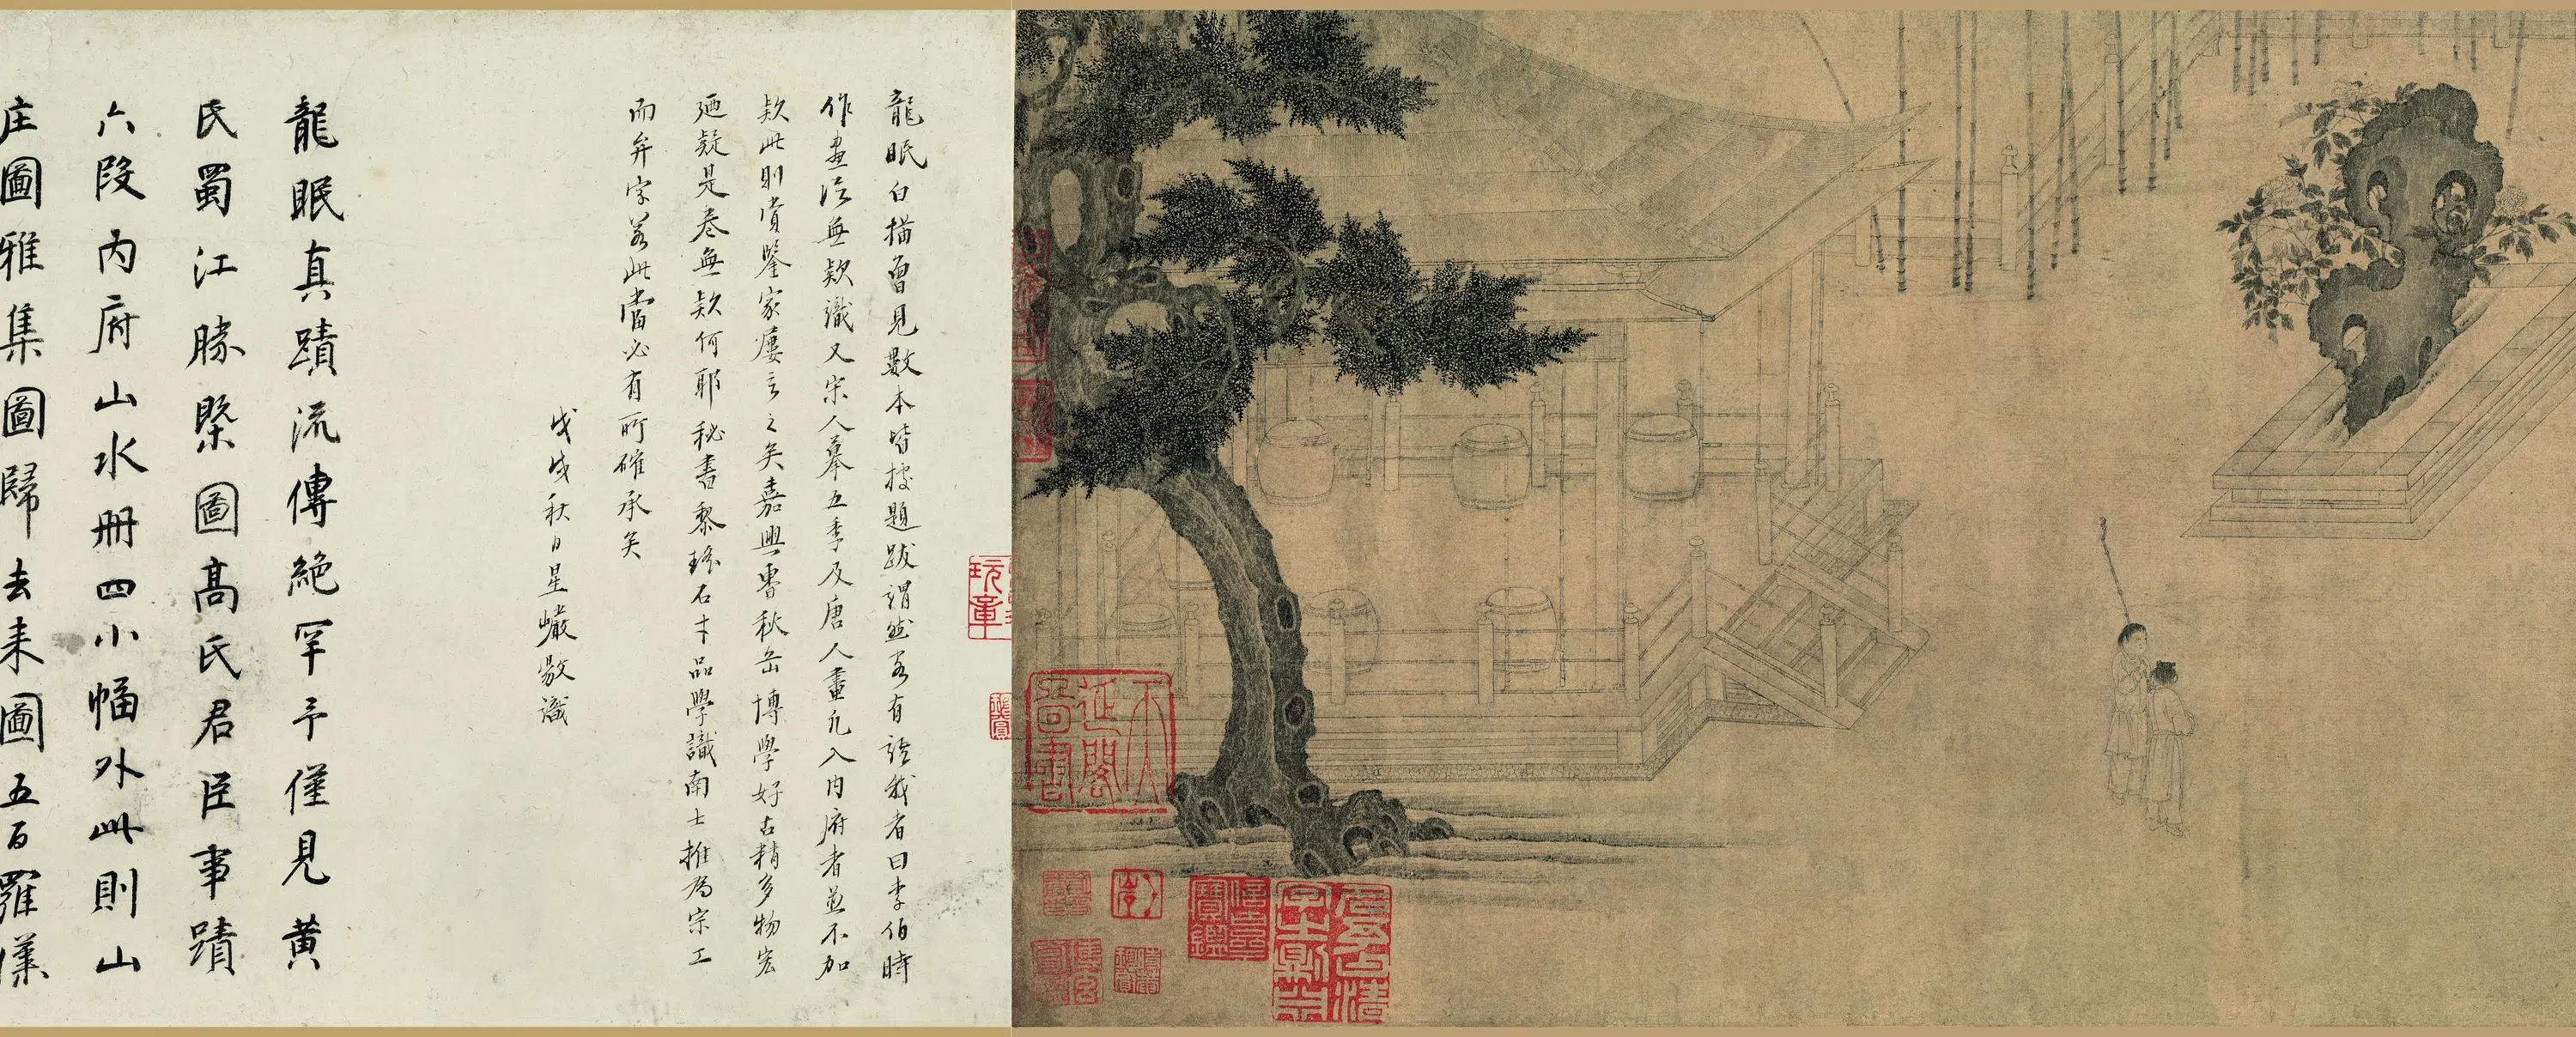 龍眠白描曾見數本皆據題跋謂然家有語我者曰李伯時
作畫法無欵識又宋人摹五季及唐人畫凡入內府者並不加
欵此則賞鑒家屢言之矣嘉興曹秋岳博學好古精多物宏
廼疑是卷無欵何耶秘書黎瑤石才品學識南士推為宗工
而弁字若此當必有所確承矣
戊戌秋日星巘敬識
龍眠真蹟流傳絕罕予僅見黃
氏蜀江勝槩圖高氏君臣事蹟
六段內府山水冊四小幅外此則山
庄圖雅集圖歸去来圖五百羅漢